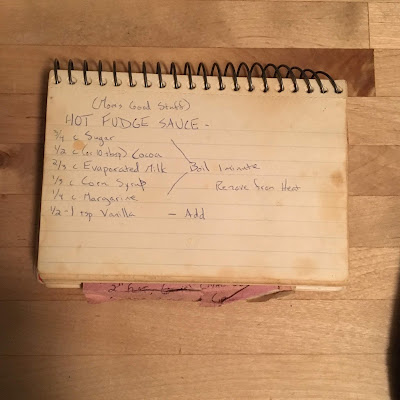 (Mom's Good Stuff)
HOT FUDGE SAUCE -
3/4 c Sugar
1/2 c (or 10 tbsp) Cocoa
2/3 c Evaporated Milk Boil 1 minute
1/3 c Corn Syrup Remove from Heat
1/4 c Margarine
1/2 - 1 tsp Vanilla - Add
2"